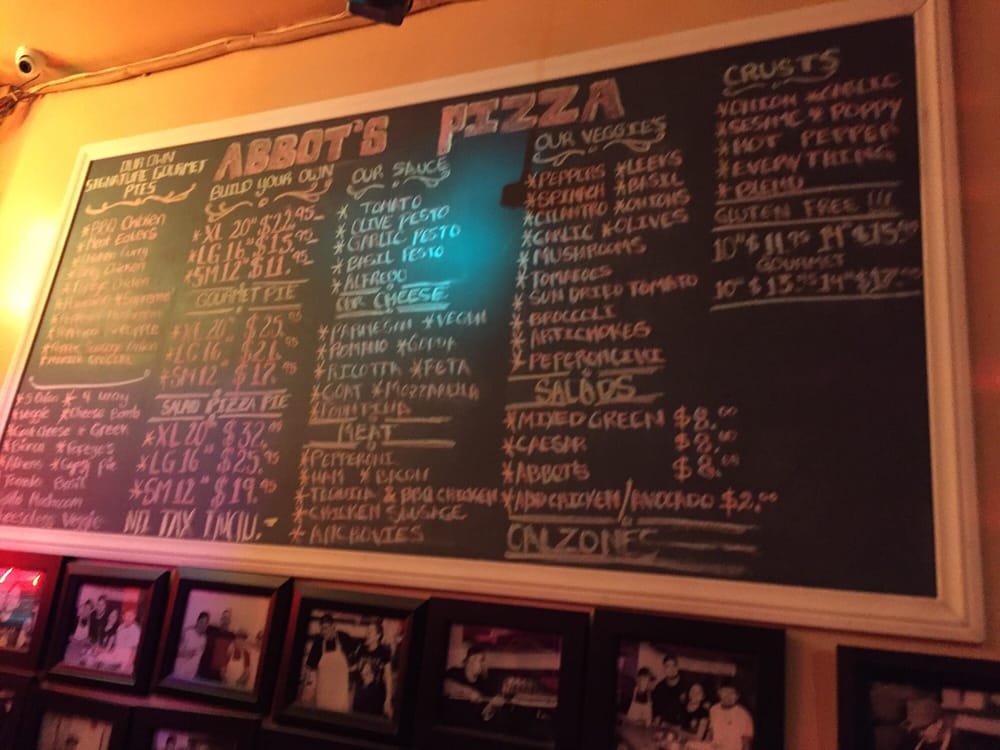 ABBOT'S PIZZA
OUR OWN
SIGNATURE GOURMET
PIES
* BBQ Chicken
* Meat Eaters
Curry
Chicken
Chicken
* 5 * 4 Way
* Veggie * Cheese Bomb
* Goat Cheese * Greek
* Popeye's
Pie
Tomato Basil
Mushroom
Veggie
BUILD YOUR OWN
* XL 20" $22.95
* LG 16" $15.95
* SM 12 $11.95
GOURMET PIE
* XL 20" $25.95
* LG 16" $21.95
* SM 12" $17.95
SALAD PIZZA PIE
* XL 20" $32.95
* LG 16" $25.95
* SM 12" $19.95
NO TAX INCLU.-
OUR SAUCE
* TOMATO
* OLIVE PESTO
* GARLIC PESTO
* BASIL PESTO
* ALFREDO
OUR CHEESE
* PARMESAN * VEGAN
* ROMANO * GOUDA
* RICOTTA * FETA
* GOAT * MOZZARELLA
MEAT
* PEPPERONI
* HAM * BACON
* TEQUILA & BBQ CHICKEN
* CHICKEN SAUSAGE
* ANCHOVIES
OUR VEGGIES
* PEPPERS * LEEKS
* SPINACH * BASIL
* CILANTRO * ONIONS
* GARLIC * OLIVES
* MUSHROOMS
* TOMATOES
* SUN DRIED TOMATO
* BROCCOLI
* ARTICHOKES
* PEPERONCINI
SALADS
* MIXED GREEN $8.00
* CAESAR $8.00
* ABBOTS $8.00
* ADD CHICKEN/AVOCADO $2.00
CALZONES
CRUSTS
* ONION * GARLIC
* SESAME * POPPY
* HOT PEPPER
* EVERYTHING
* BLEND
GLUTEN FREE !!!
10" $11.95 14" $15.95
GOURMET
10" $15.95 14" $17.95